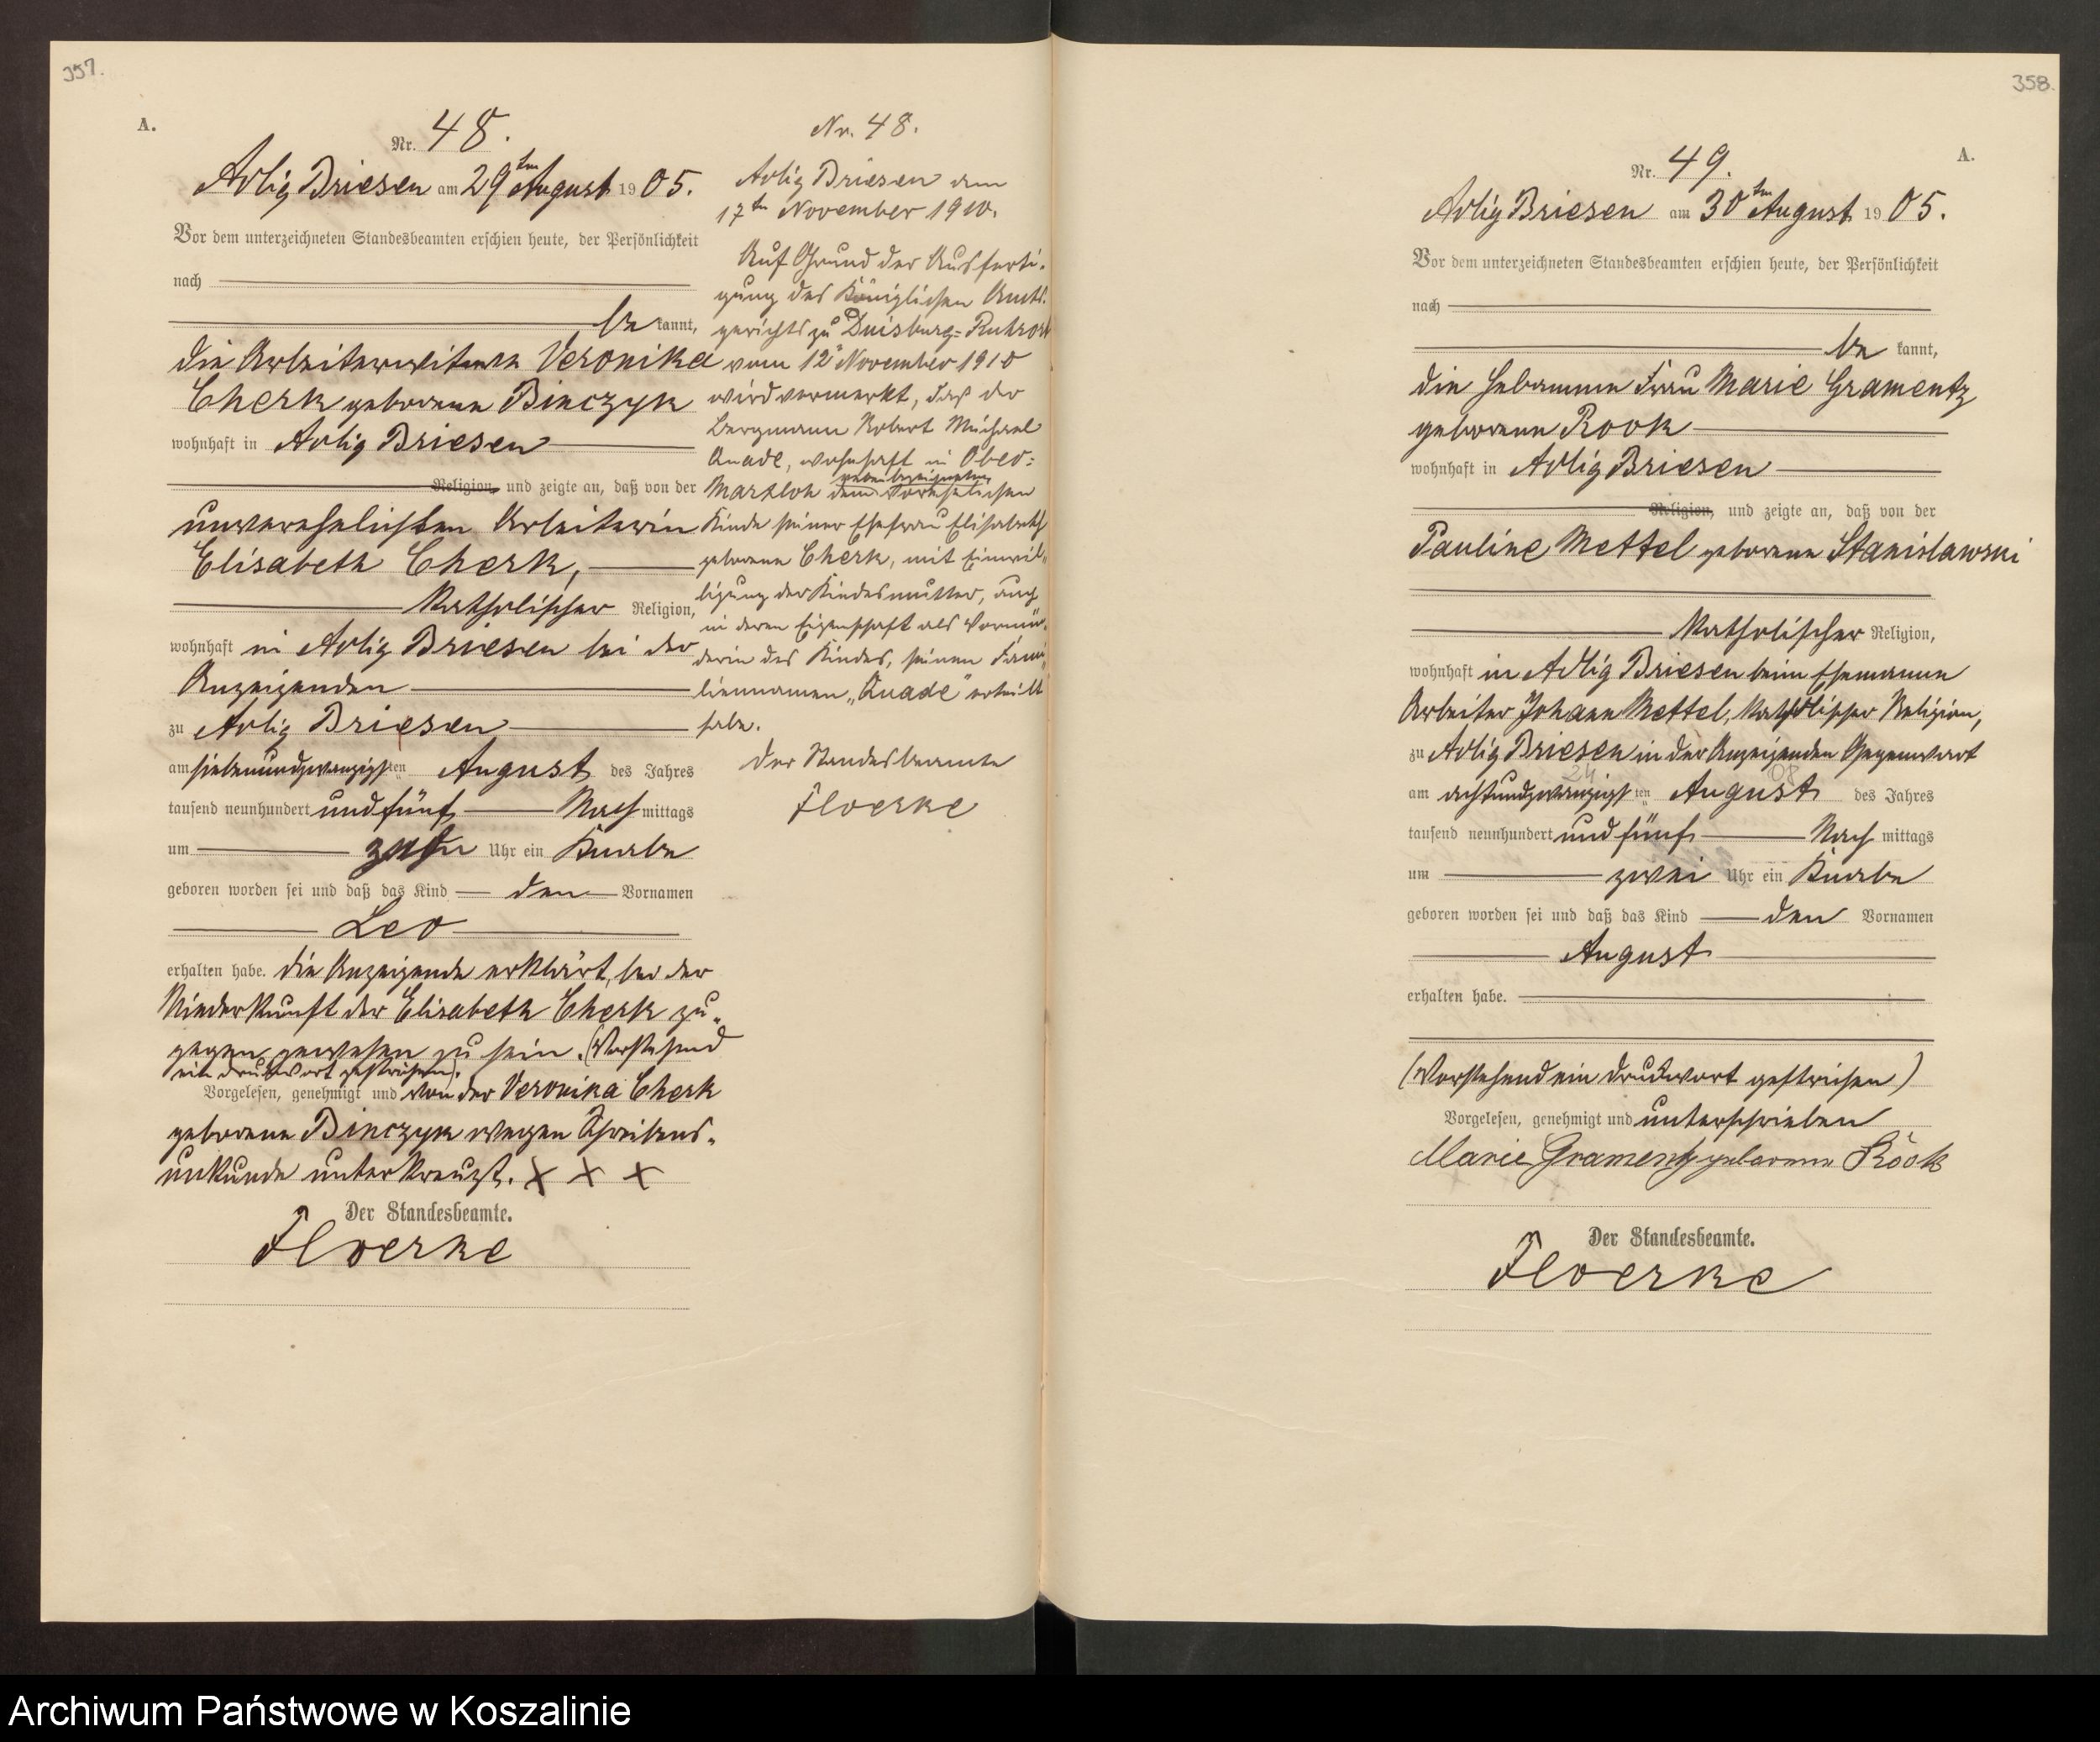 357.
A.
Nr. 48.
Adlig Briesen am 29ten August 1905.
Vor dem unterzeichneten Standesbeamten erschien heute, der Persönlichkeit
nach
be kannt,
die Arbeiterwitwe Veronika
Cherk geborene Binczyk
wohnhaft in Adlig Briesen
Religion, und zeigte an, daß von der
unverehelichten Arbeiterin
Elisabeth Cherk,
katholischer Religion,
wohnhaft in Adlig Briesen bei der
Anzeigenden
zu Adlig Briesen
am siebenundzwanzigsten August des Jahres
tausend neunhundert und fünf Nach mittags
um zehn Uhr ein Knabe
geboren worden sei und daß das Kind den Vornamen
Leo
erhalten habe. Die Anzeigende erklärt, bei der
Niederkunft der Elisabeth Cherk zu-
gegen gewesen zu sein. (Vorstehend
ein Druckwort gestrichen).
Vorgelesen, genehmigt und von der Veronika Cherk
geborene Binczyk wegen Schreibens-
unkunde unterkreuzt. X X X
Der Standesbeamte.
Floerke
Nr. 48.
Adlig Briesen am
17ten November 1910.
Auf Grund der Ausferti-
gung des Königlichen Amts-
gerichts zu Duisburg-Ruhrort
vom 12ten November 1910
wird vermerkt, daß der
Bergmann Robert Michael
Quade, wohnhaft in Ober-
nebenbezeichneten
Marxloh dem vorehelichen
Kinde seiner Ehefrau Elisabeth
geborene Cherk, mit Einwil-
ligung der Kindesmutter, auch
in deren Eigenschaft als Vormün-
derin des Kindes, seinen Fami-
liennamen „Quade" erteilt
habe.
Der Standesbeamte
Floerke
358.
A.
Nr. 49.
Adlig Briesen am 30ten August 1905.
Vor dem unterzeichneten Standesbeamten erschien heute, der Persönlichkeit
nach
be kannt,
die Hebamme Frau Marie Gramentz
geborene Rook
wohnhaft in Adlig Briesen
Religion, und zeigte an, daß von der
Pauline Mettel geborene Stanislawski
katholischer Religion,
wohnhaft in Adlig Briesen beim Ehemanne
Arbeiter Johann Mettel, katholischer Religion,
zu Adlig Briesen in der Anzeigenden Gegenwart
am achtundzwanzigsten August des Jahres
tausend neunhundert und fünf Nach mittags
um zwei Uhr ein Knabe
geboren worden sei und daß das Kind den Vornamen
August
erhalten habe.
(Vorstehend ein Druckwort gestrichen)
Vorgelesen, genehmigt und unterschrieben
Marie Gramentz geborene Rook
Der Standesbeamte.
Floerke
Archiwum Państwowe w Koszalinie